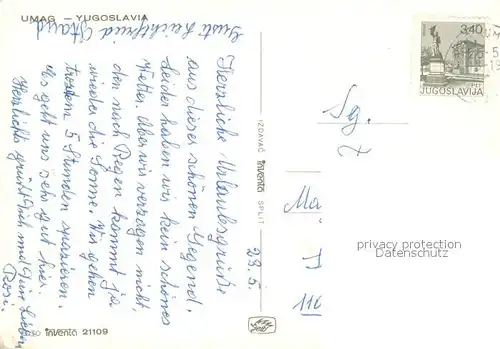 UMAG — YUGOSLAVIA
Herzliche Urlaubsgrüße
aus dieser schönen Gegend.
Leider haben wir kein schönes
Wetter. Aber wir verzagen nicht,
denn nach Regen kommt ja
wieder die Sonne. Wir gehen
trotzdem 5 Stunden spazieren.
Es geht uns sehr gut hier.
Herzlichst grüßt Dich und Deine Lieben
Rosi.
23.5.
IZDAVAČ inventa SPLIT
inventa 21109
3.40
JUGOSLAVIJA
Sg.
Ma
110
privacy protection
Datenschutz